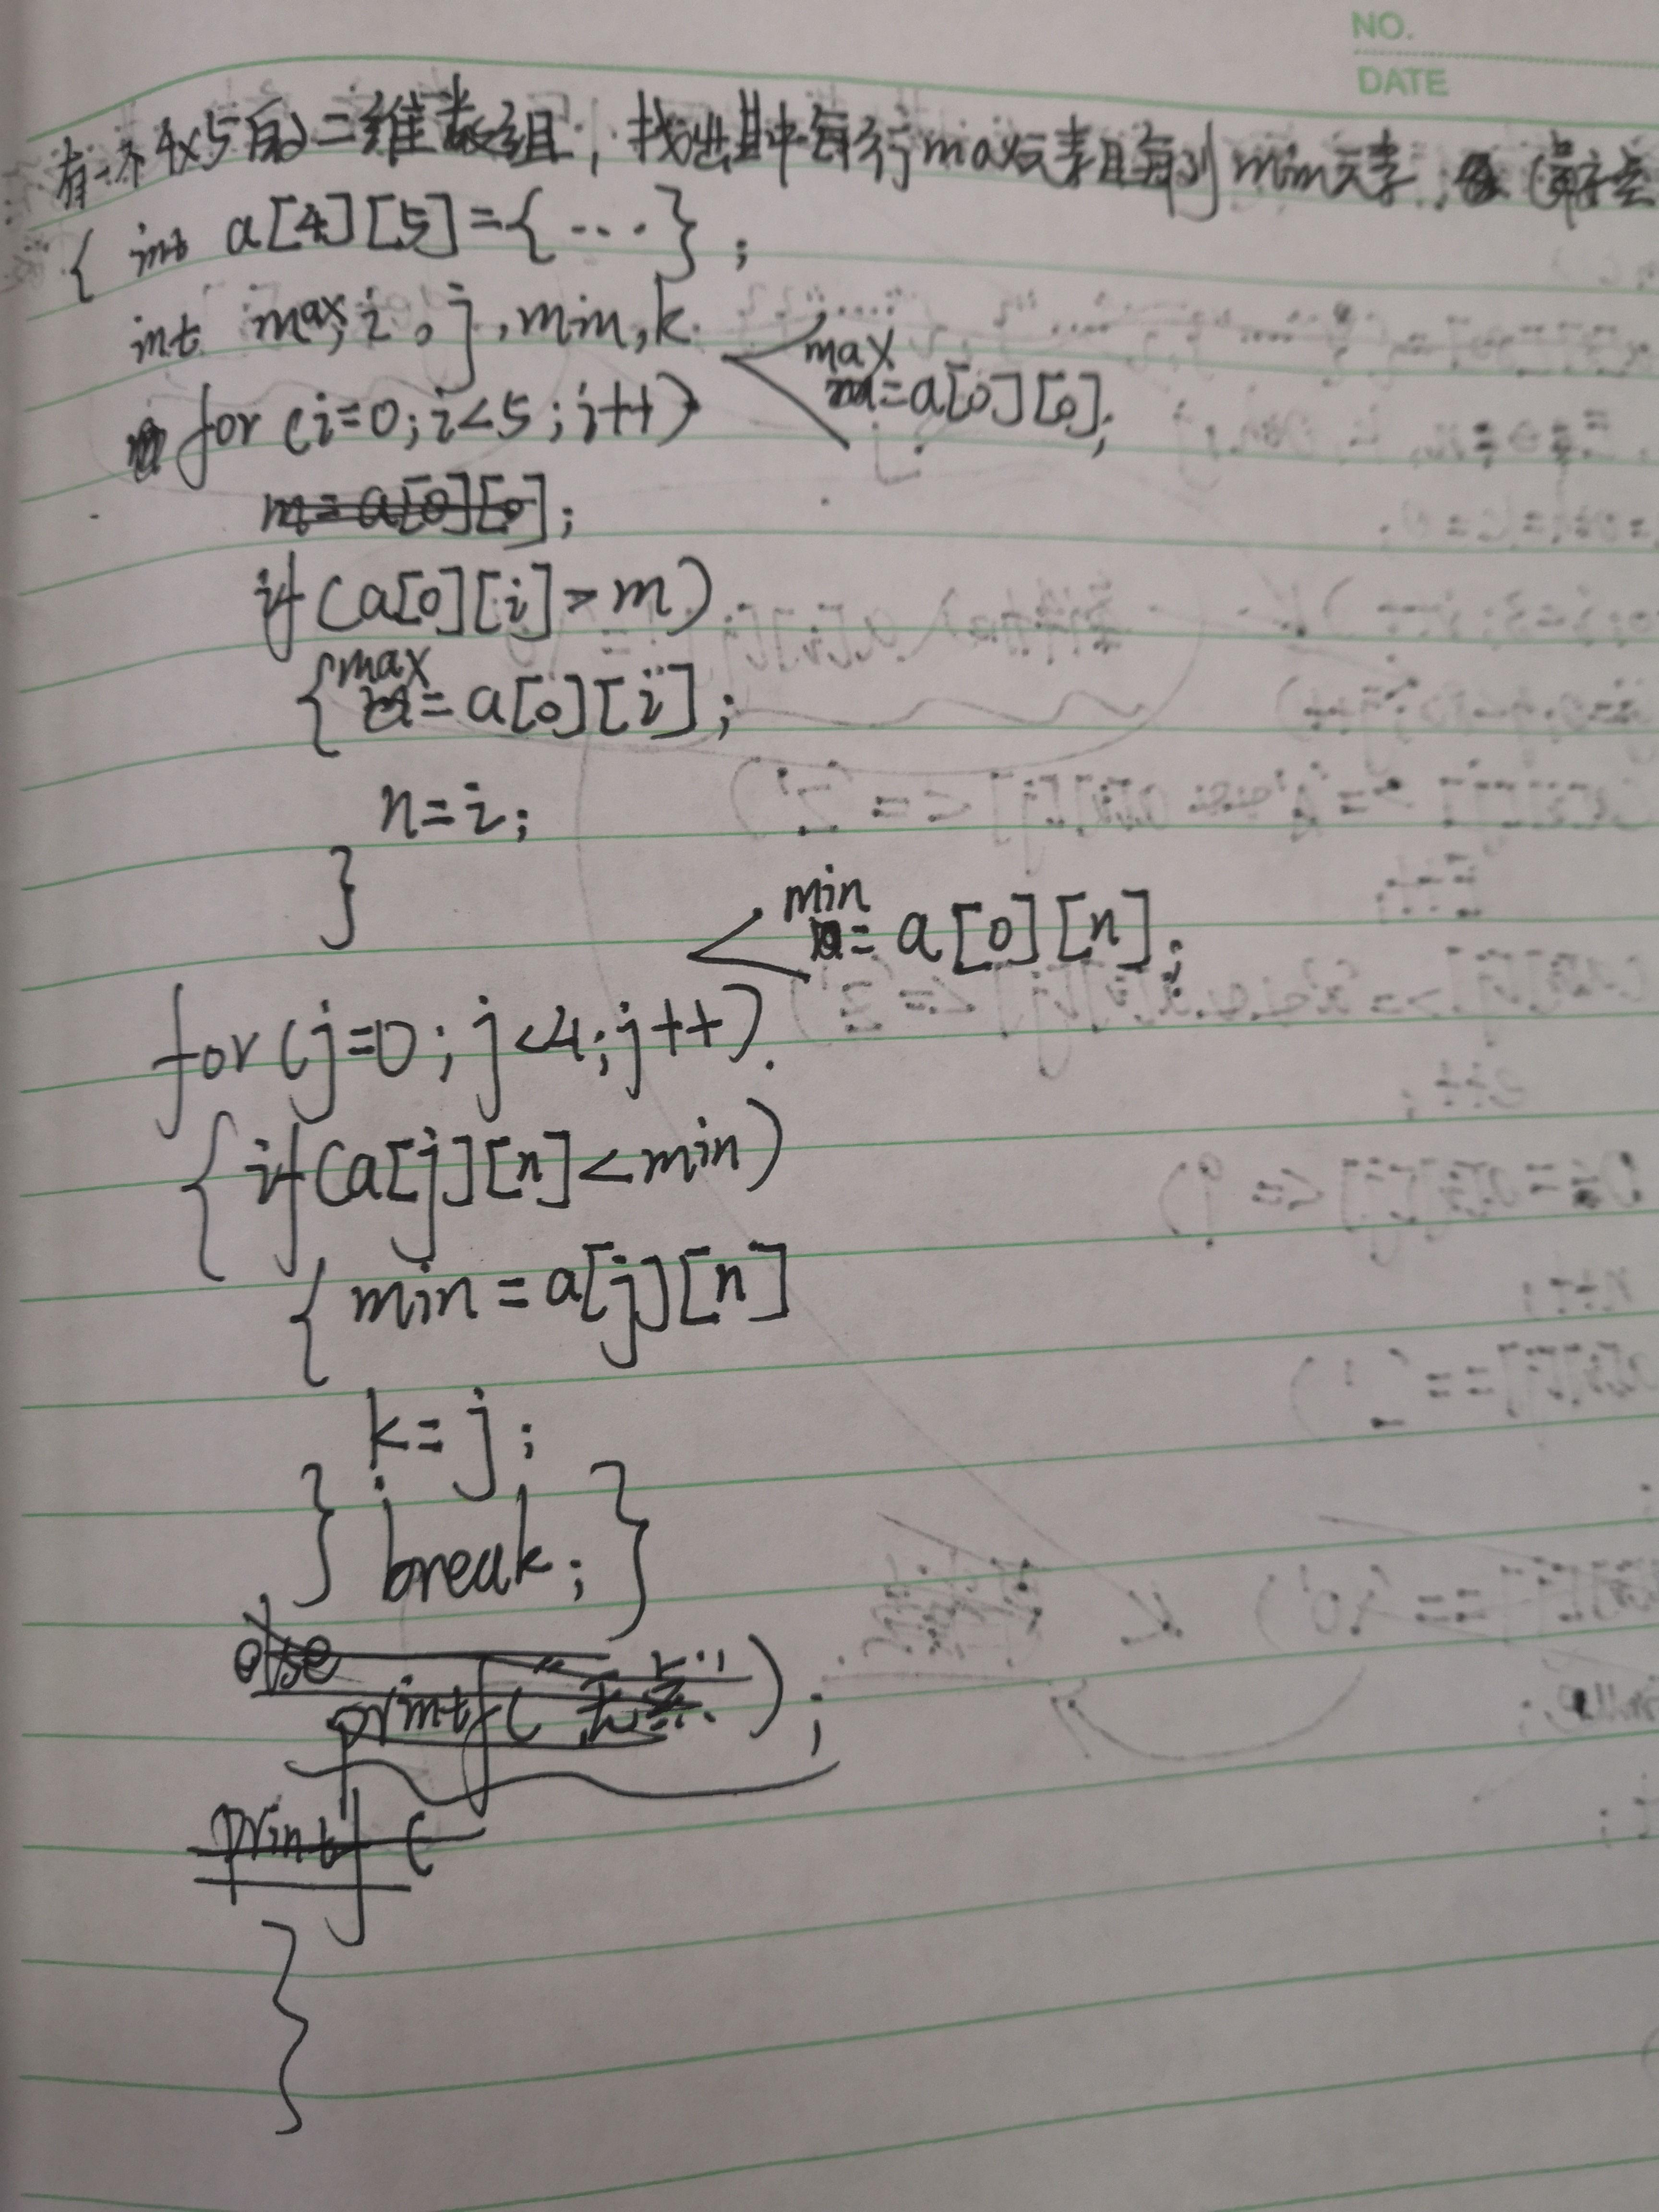 NO.
DATE
有一个4x5的二维数组,找出其中每行max元素且每列min元素,
{ int a[4][5]={...};
int max,i,j,min,k.
max
=a[0][0];
for(i=0;i<5;i++)
m=a[0][0];
if(a[0][i]>m)
{max
=a[0][i];
n=i;
}
min
=a[0][n];
for(j=0;j<4;j++).
{if(a[j][n]<min)
{min=a[j][n]
k=j;
} break; }
else
printf("");
printf(
}